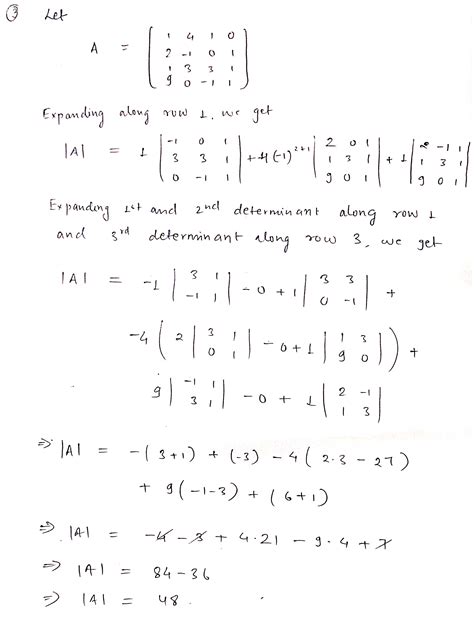 ③ Let
A = [ 1 4 1 0
2 -1 0 1
1 3 3 1
9 0 -1 1 ]
Expanding along row 1, we get
|A| = 1 | -1 0 1 ; 3 3 1 ; 0 -1 1 | + 4(-1)²⁺¹ | 2 0 1 ; 1 3 1 ; 9 0 1 | + 1 | 2 -1 1 ; 1 3 1 ; 9 0 1 |
Expanding 1st and 2nd determinant along row 1
and 3rd determinant along row 3, we get
|A| = -1 | 3 1 ; -1 1 | - 0 + 1 | 3 3 ; 0 -1 | +
-4 ( 2 | 3 1 ; 0 1 | - 0 + 1 | 1 3 ; 9 0 | ) +
9 | -1 1 ; 3 1 | - 0 + 1 | 2 -1 ; 1 3 |
⇒ |A| = -(3+1) + (-3) - 4(2·3 - 27)
+ 9(-1-3) + (6+1)
⇒ |A| = -4 - 3 + 4·21 - 9·4 + 7
⇒ |A| = 84 - 36
⇒ |A| = 48.